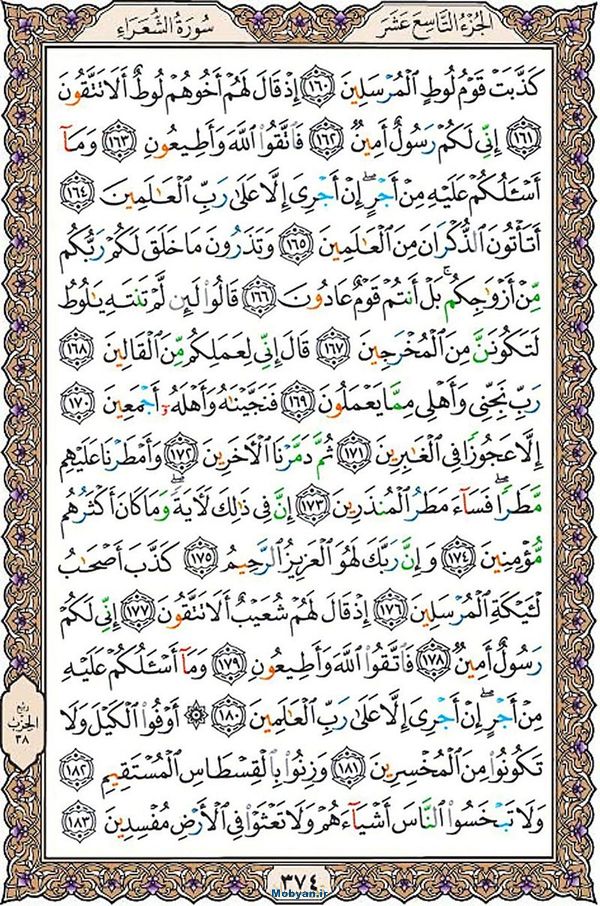 الجزء التاسع عشر
سورة الشعراء
كَذَّبَتْ قَوْمُ لُوطٍ ٱلْمُرْسَلِينَ ﴿١٦٠﴾ إِذْ قَالَ لَهُمْ أَخُوهُمْ لُوطٌ أَلَا تَتَّقُونَ
﴿١٦١﴾ إِنِّى لَكُمْ رَسُولٌ أَمِينٌ ﴿١٦٢﴾ فَٱتَّقُوا۟ ٱللَّهَ وَأَطِيعُونِ ﴿١٦٣﴾ وَمَآ
أَسْـَٔلُكُمْ عَلَيْهِ مِنْ أَجْرٍ ۖ إِنْ أَجْرِىَ إِلَّا عَلَىٰ رَبِّ ٱلْعَـٰلَمِينَ ﴿١٦٤﴾
أَتَأْتُونَ ٱلذُّكْرَانَ مِنَ ٱلْعَـٰلَمِينَ ﴿١٦٥﴾ وَتَذَرُونَ مَا خَلَقَ لَكُمْ رَبُّكُم
مِّنْ أَزْوَٰجِكُم ۚ بَلْ أَنتُمْ قَوْمٌ عَادُونَ ﴿١٦٦﴾ قَالُوا۟ لَئِن لَّمْ تَنتَهِ يَـٰلُوطُ
لَتَكُونَنَّ مِنَ ٱلْمُخْرَجِينَ ﴿١٦٧﴾ قَالَ إِنِّى لِعَمَلِكُم مِّنَ ٱلْقَالِينَ ﴿١٦٨﴾
رَبِّ نَجِّنِى وَأَهْلِى مِمَّا يَعْمَلُونَ ﴿١٦٩﴾ فَنَجَّيْنَـٰهُ وَأَهْلَهُۥٓ أَجْمَعِينَ ﴿١٧٠﴾
إِلَّا عَجُوزًا فِى ٱلْغَـٰبِرِينَ ﴿١٧١﴾ ثُمَّ دَمَّرْنَا ٱلْـَٔاخَرِينَ ﴿١٧٢﴾ وَأَمْطَرْنَا عَلَيْهِم
مَّطَرًا ۖ فَسَآءَ مَطَرُ ٱلْمُنذَرِينَ ﴿١٧٣﴾ إِنَّ فِى ذَٰلِكَ لَـَٔايَةً ۖ وَمَا كَانَ أَكْثَرُهُم
مُّؤْمِنِينَ ﴿١٧٤﴾ وَإِنَّ رَبَّكَ لَهُوَ ٱلْعَزِيزُ ٱلرَّحِيمُ ﴿١٧٥﴾ كَذَّبَ أَصْحَـٰبُ
لْـَٔيْكَةِ ٱلْمُرْسَلِينَ ﴿١٧٦﴾ إِذْ قَالَ لَهُمْ شُعَيْبٌ أَلَا تَتَّقُونَ ﴿١٧٧﴾ إِنِّى لَكُمْ
رَسُولٌ أَمِينٌ ﴿١٧٨﴾ فَٱتَّقُوا۟ ٱللَّهَ وَأَطِيعُونِ ﴿١٧٩﴾ وَمَآ أَسْـَٔلُكُمْ عَلَيْهِ
مِنْ أَجْرٍ ۖ إِنْ أَجْرِىَ إِلَّا عَلَىٰ رَبِّ ٱلْعَـٰلَمِينَ ﴿١٨٠﴾ ۞ أَوْفُوا۟ ٱلْكَيْلَ وَلَا
تَكُونُوا۟ مِنَ ٱلْمُخْسِرِينَ ﴿١٨١﴾ وَزِنُوا۟ بِٱلْقِسْطَاسِ ٱلْمُسْتَقِيمِ ﴿١٨٢﴾
وَلَا تَبْخَسُوا۟ ٱلنَّاسَ أَشْيَآءَهُمْ وَلَا تَعْثَوْا۟ فِى ٱلْأَرْضِ مُفْسِدِينَ ﴿١٨٣﴾
ربع
الحزب
٣٨
٣٧٤
Mobyan.ir